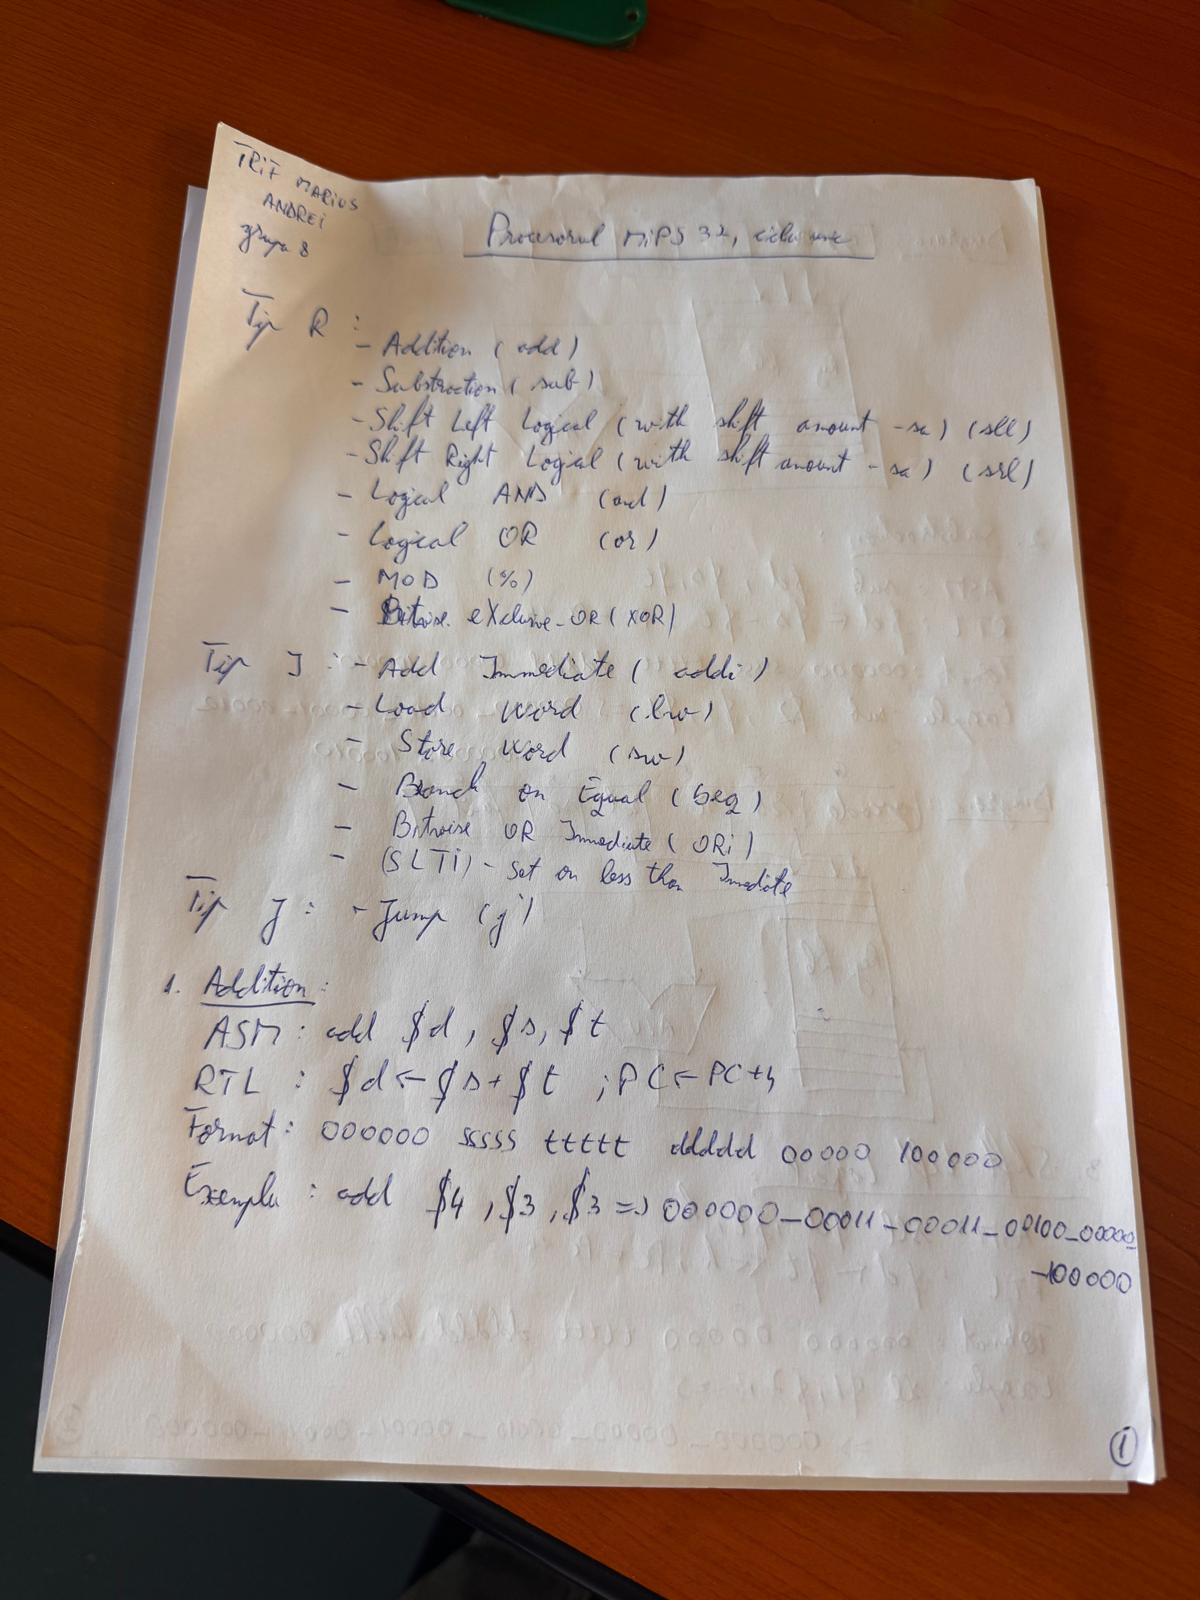 TRIF MARIUS
ANDREI
grupa 8
Procesorul MIPS 32, ciclu unic
Tip R :
- Addition (add)
- Substraction (sub)
- Shift Left Logical (with shift amount - sa) (sll)
- Shift Right Logical (with shift amount - sa) (srl)
- Logical AND (and)
- Logical OR (or)
- MOD (%)
- Bitwise eXclusive-OR (XOR)
Tip I : - Add Immediate (addi)
- Load Word (lw)
- Store Word (sw)
- Branch on Equal (beq)
- Bitwise OR Immediate (ORi)
- (SLTi) - Set on less than Imediate
Tip J : - Jump (j)
1. Addition :
ASM : add $d, $s, $t
RTL : $d ← $s + $t ; PC ← PC + 4
Format : 000000 sssss ttttt ddddd 00000 100000
Exemplu : add $4, $3, $3 => 000000_00011_00011_00100_00000
_100000
1